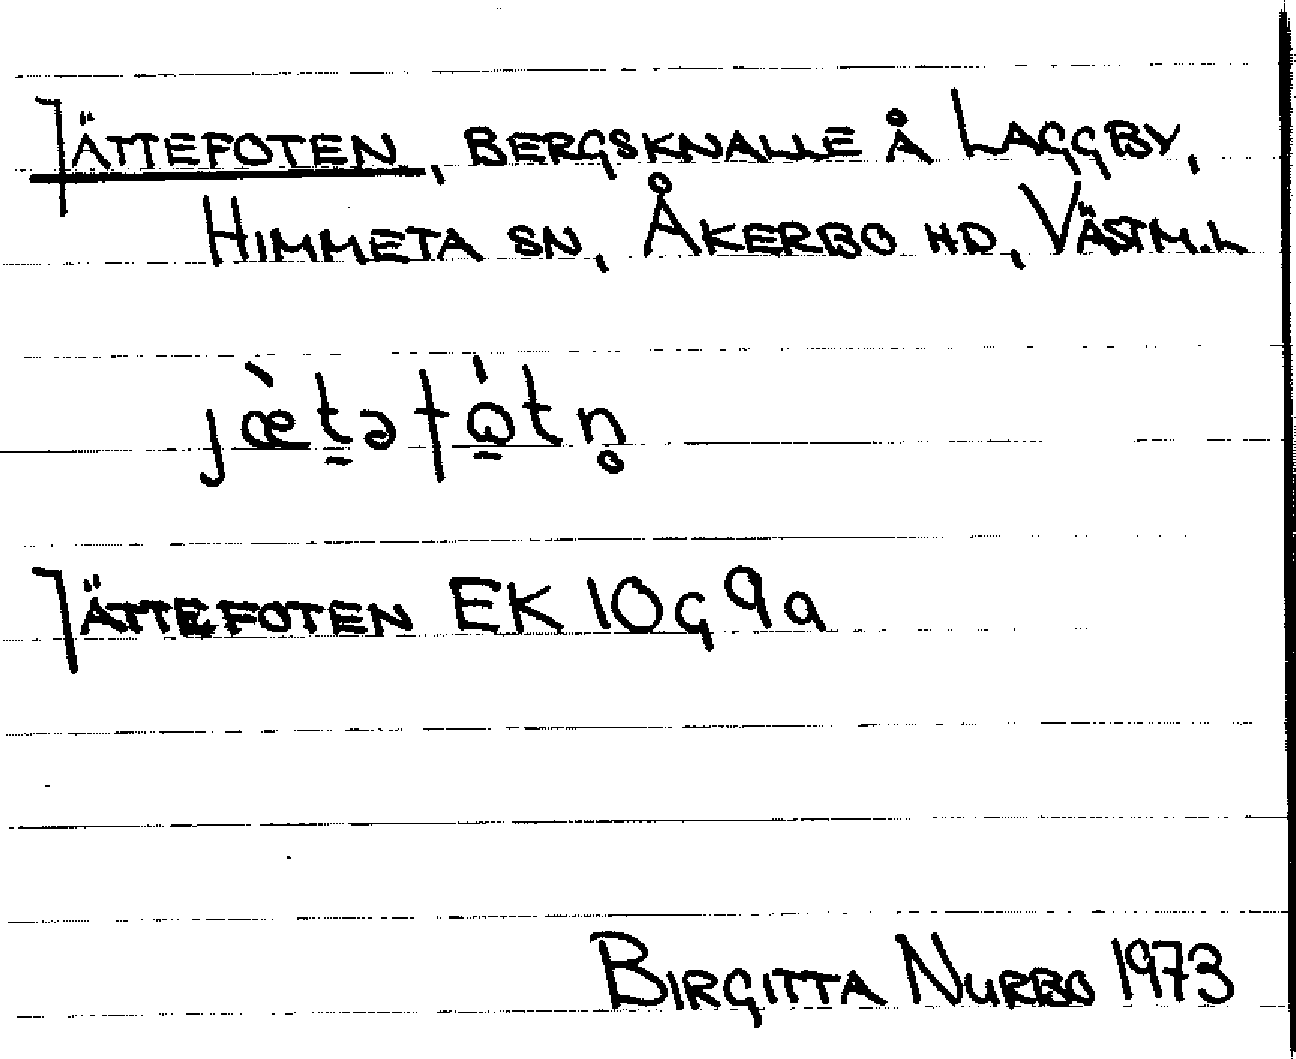 JÄTTEFOTEN, BERGSKNALLE Å LAGGBY,
HIMMETA SN, ÅKERBO HD, VÄSTM.L
jæ̀t̠əfὼ̠tn̥
JÄTTEFOTEN EK 10G9a
BIRGITTA NURBO 1973